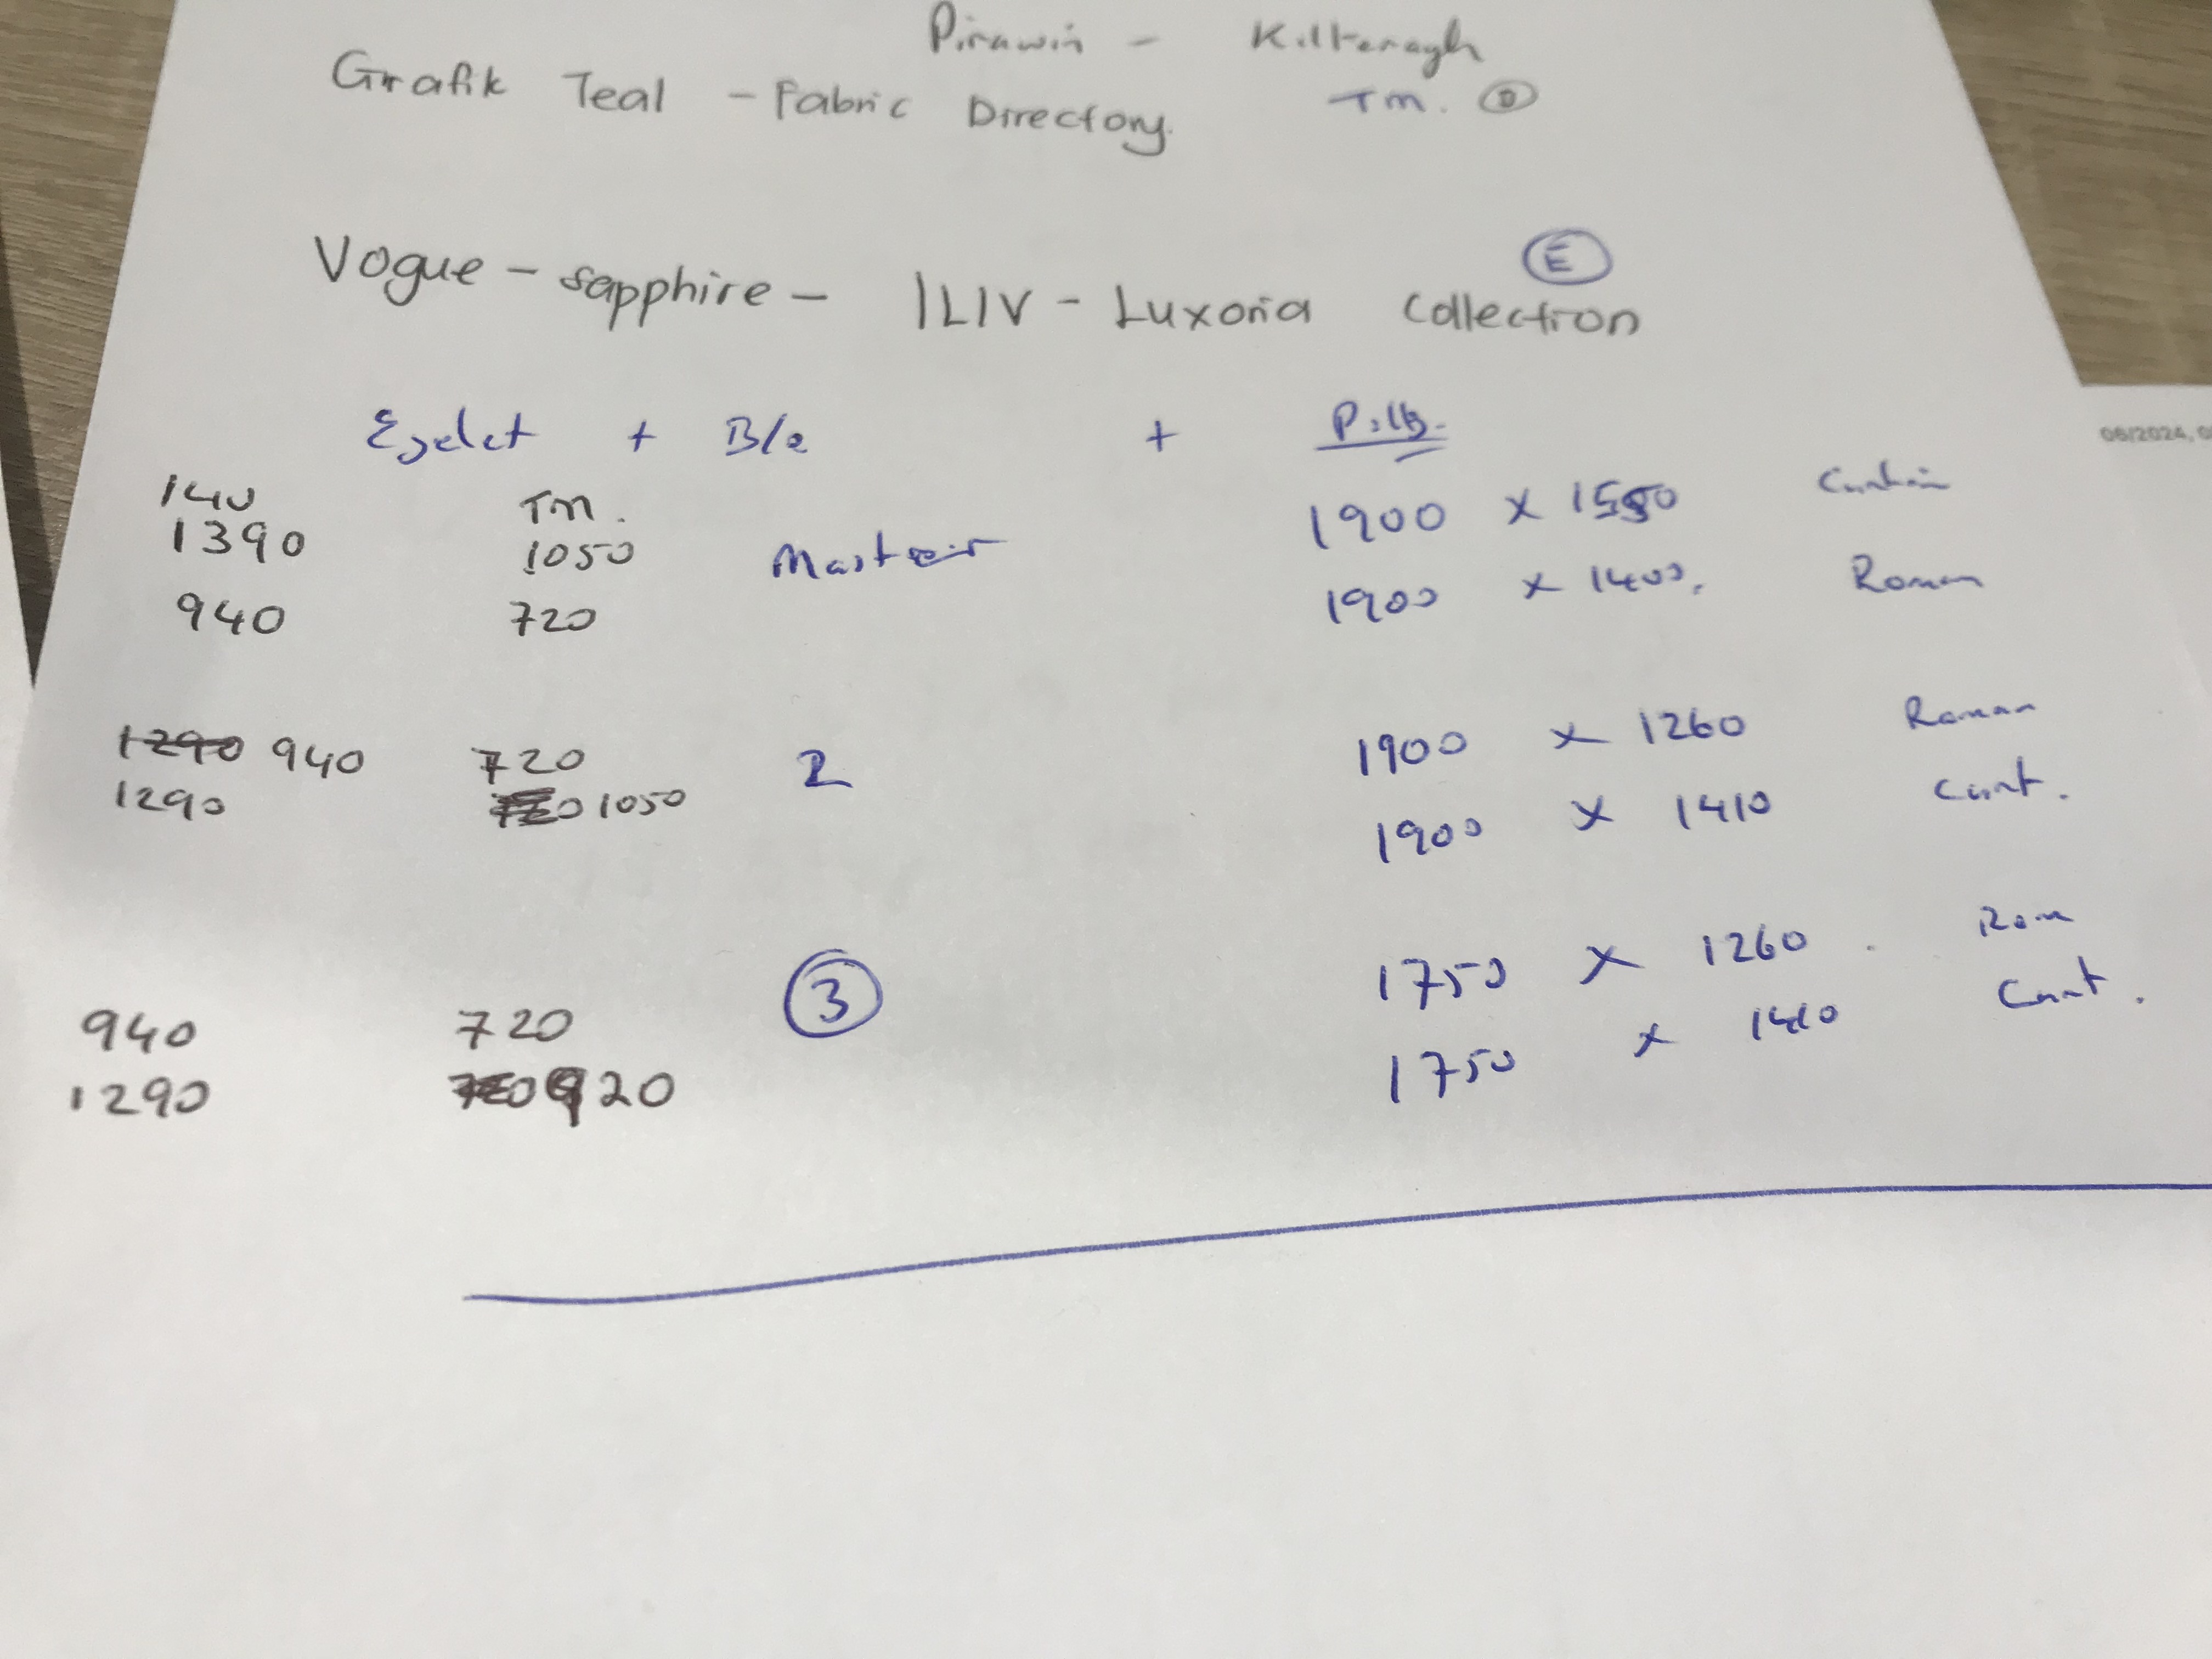 Pirawin - Kiltenagh
Grafik Teal - Fabric Directory. TM. D
Vogue - sapphire - ILIV - Luxoria Collection E
Eyelet + B/o + P.llB.
06/2024, 0
140 TM.
1390 1050 Master 1900 x 1550 Curtain
940 720 1900 x 1400. Roman
1290 940 720 2 1900 x 1260 Roman
1290 720 1050 1900 x 1410 Curt.
940 720 3 1750 x 1260 . Rom
1290 720 920 1750 x 1410 Curt.